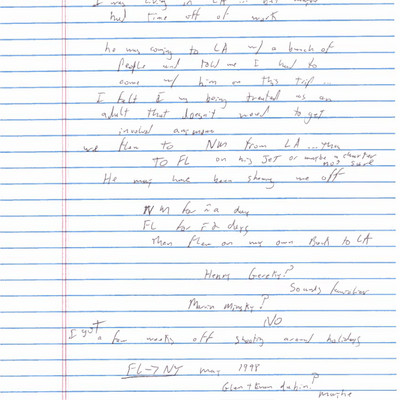 I was living in LA ... but
had time off of work
he was coming to LA w/ a bunch of
people and told me I had to
come w/ him on this trip ...
I felt I was being treated as an
adult that doesn't want to get
involved anymore
we flew to NM from LA ... then
TO FL on his JET or maybe a charter
not sure
He may have been showing me off
NM for ≈ a day
FL for ≈ 2 days
then flew on my own back to LA
Henry ?
Sounds familiar
Marvin Minsky?
NO
I got a few weeks off shooting around holidays
FL → NY may 1998
Glen + Eva Dubin?
maybe